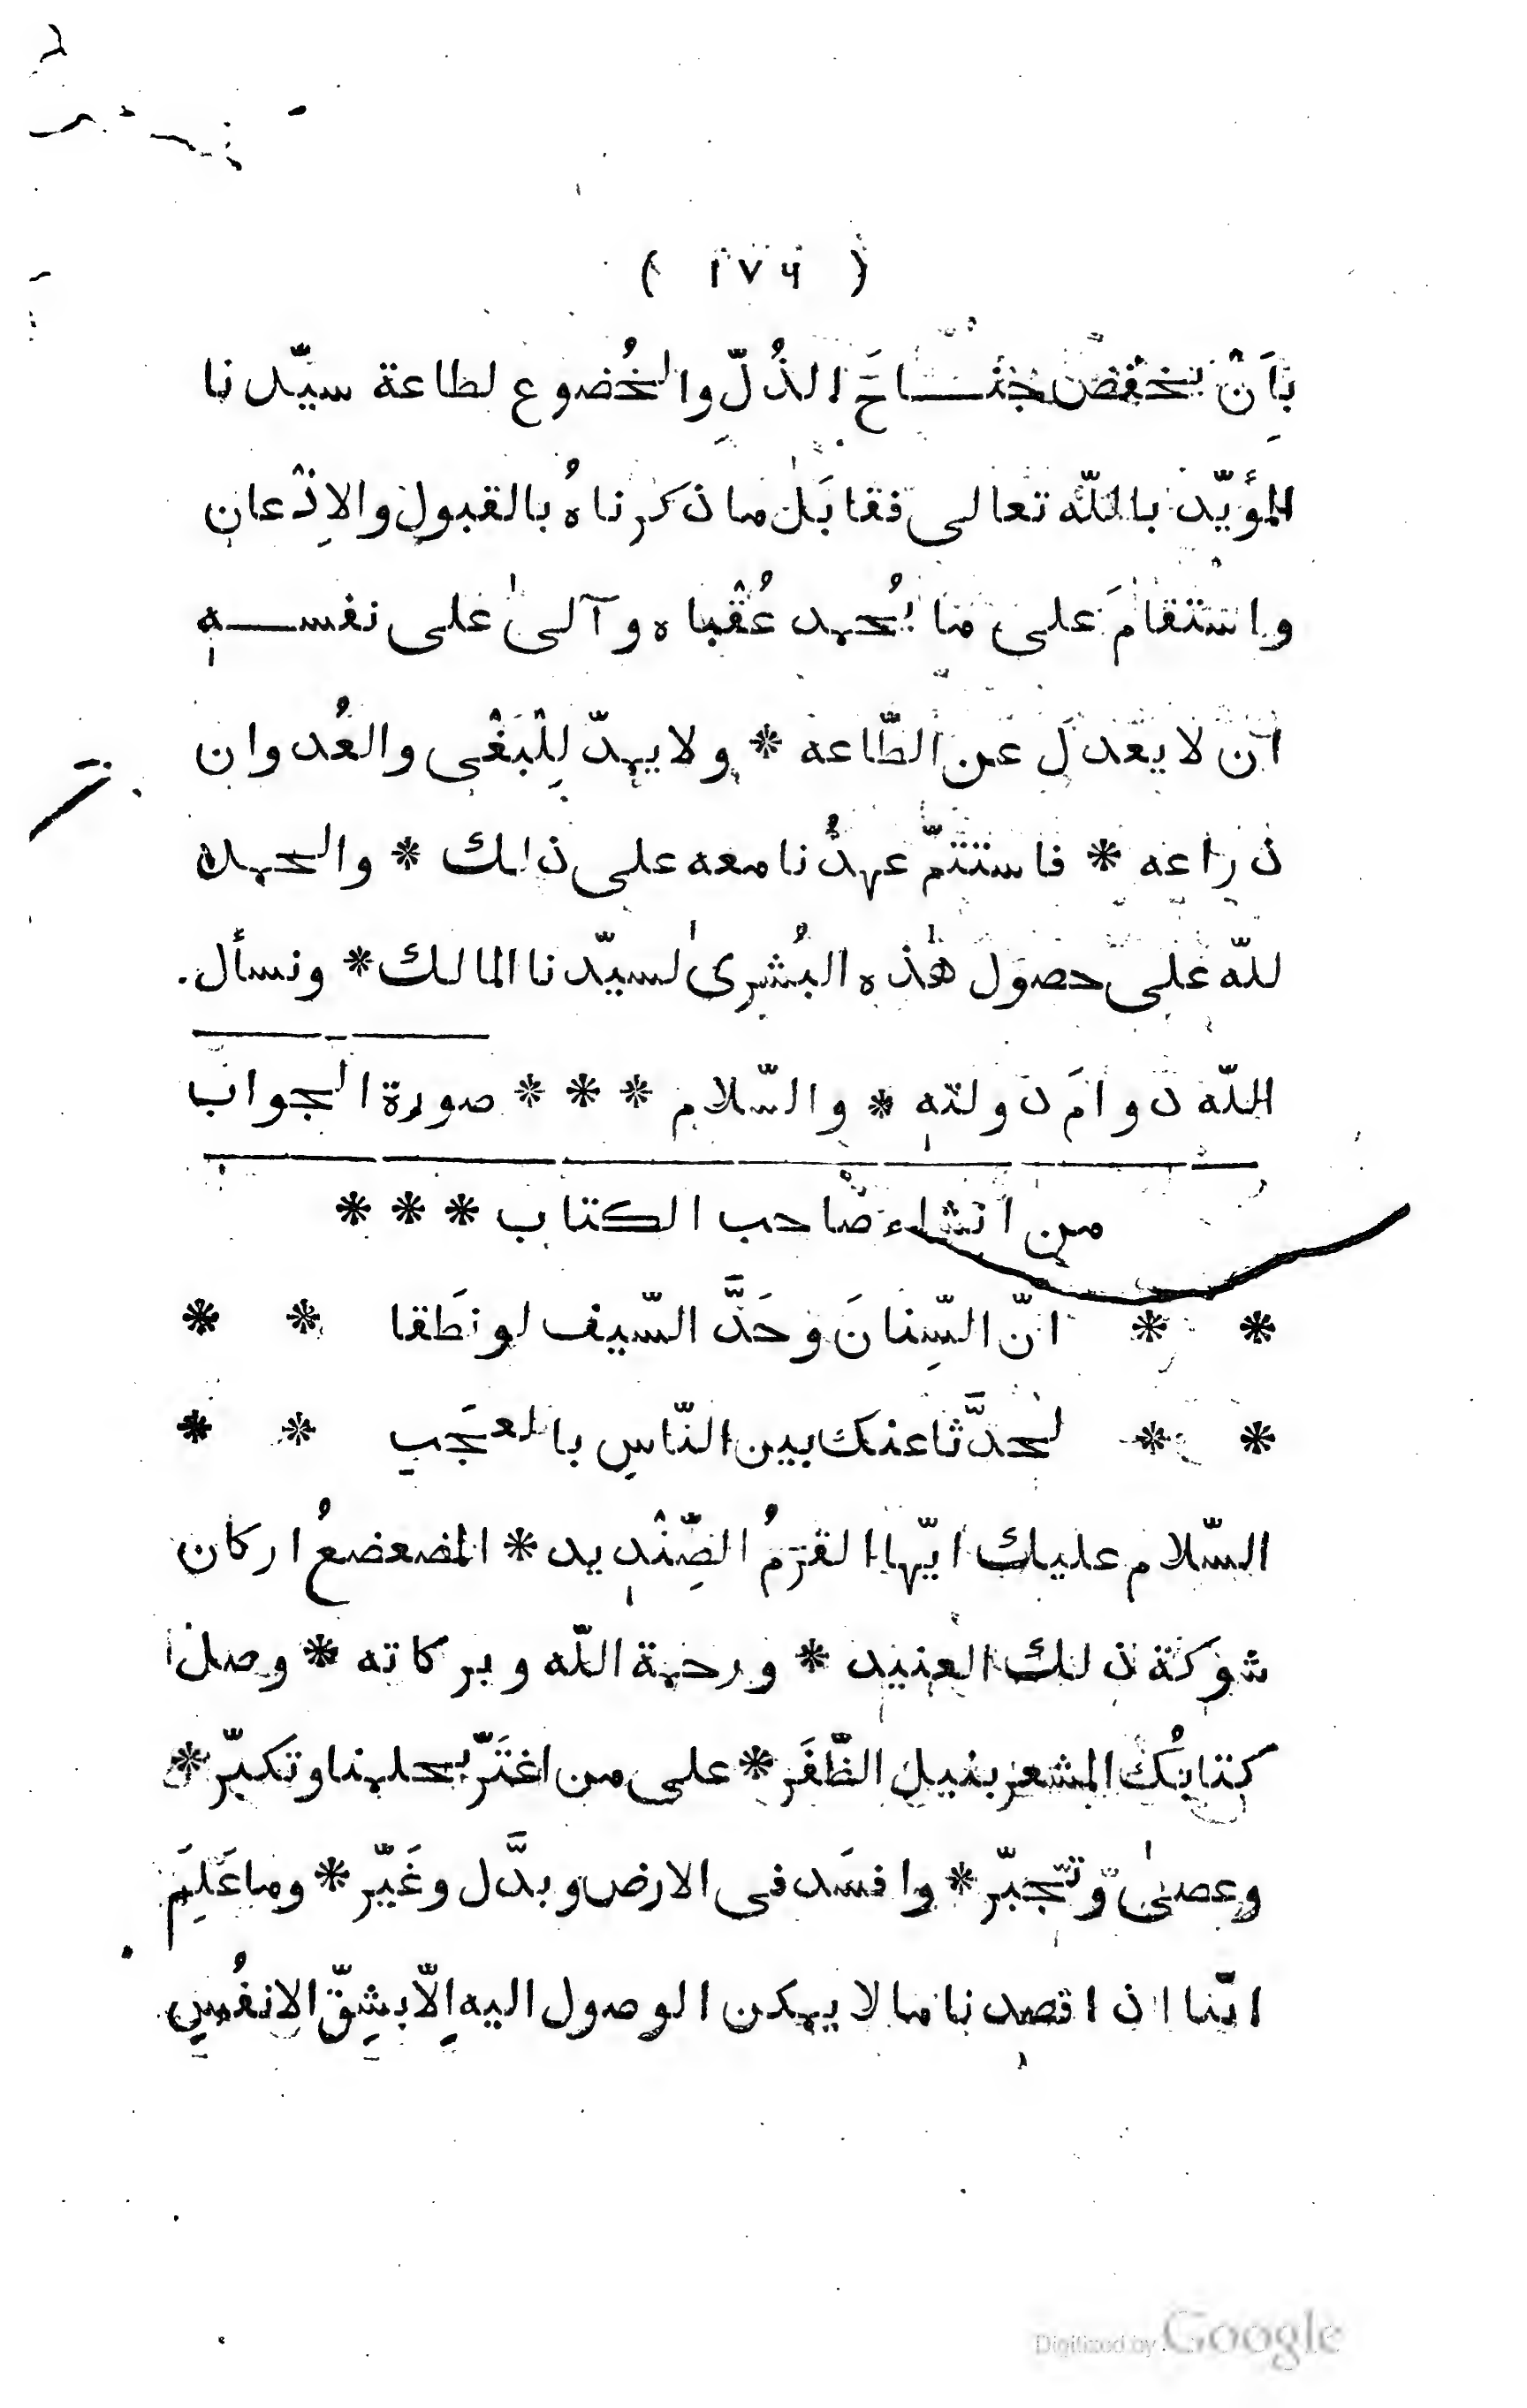 ( ١٧٦ )
بِاَنْ يخفض جَنــاحَ الذُلّ والخُضوع لطاعة سيّدنا
المؤيّد باللّه تعالى فقابَل ما ذكرناهُ بالقبولِ والاِذْعانِ
واسْتقامَ على ما يُحمد عُقْباه وآلىٰ على نفســهِ
اَن لا يعْدلَ عن الطّاعه * ولا يمدّ لِلْبَغْى والعُدوان
ذراعه * فاستتمّ عهدُنا معه على ذلك * والحمد
للّه على حصول هٰذه البُشرىٰ لسيّدنا المالك * ونسأل
اللّه دوامَ دولتهِ * والسّلام * * * صورة الجواب
من انشاء صاحب الكتاب * * *
* * انّ السِّنانَ وحَدَّ السّيف لو نطَقا * *
* * لحدَّثا عنك بين النّاسِ بالعجَبِ * *
السّلام عليك ايّها القرْمُ الصِّنْدِيد * المضعضعُ اركان
شوكة ذلك العنيد * ورحمة اللّه وبركاته * وصل
كتابُك المشعر بنيل الظّفَر * على من اغتَرّ بحلمنا وتكبّر *
وعصىٰ وتجبّر * وافسَد فى الارض وبدَّل وغَيّر * وما عَلِمَ
انّنا اذا قصدنا ما لا يمكن الوصول اليه اِلّا بشِقّ الانفُسِ
Digitized by Google